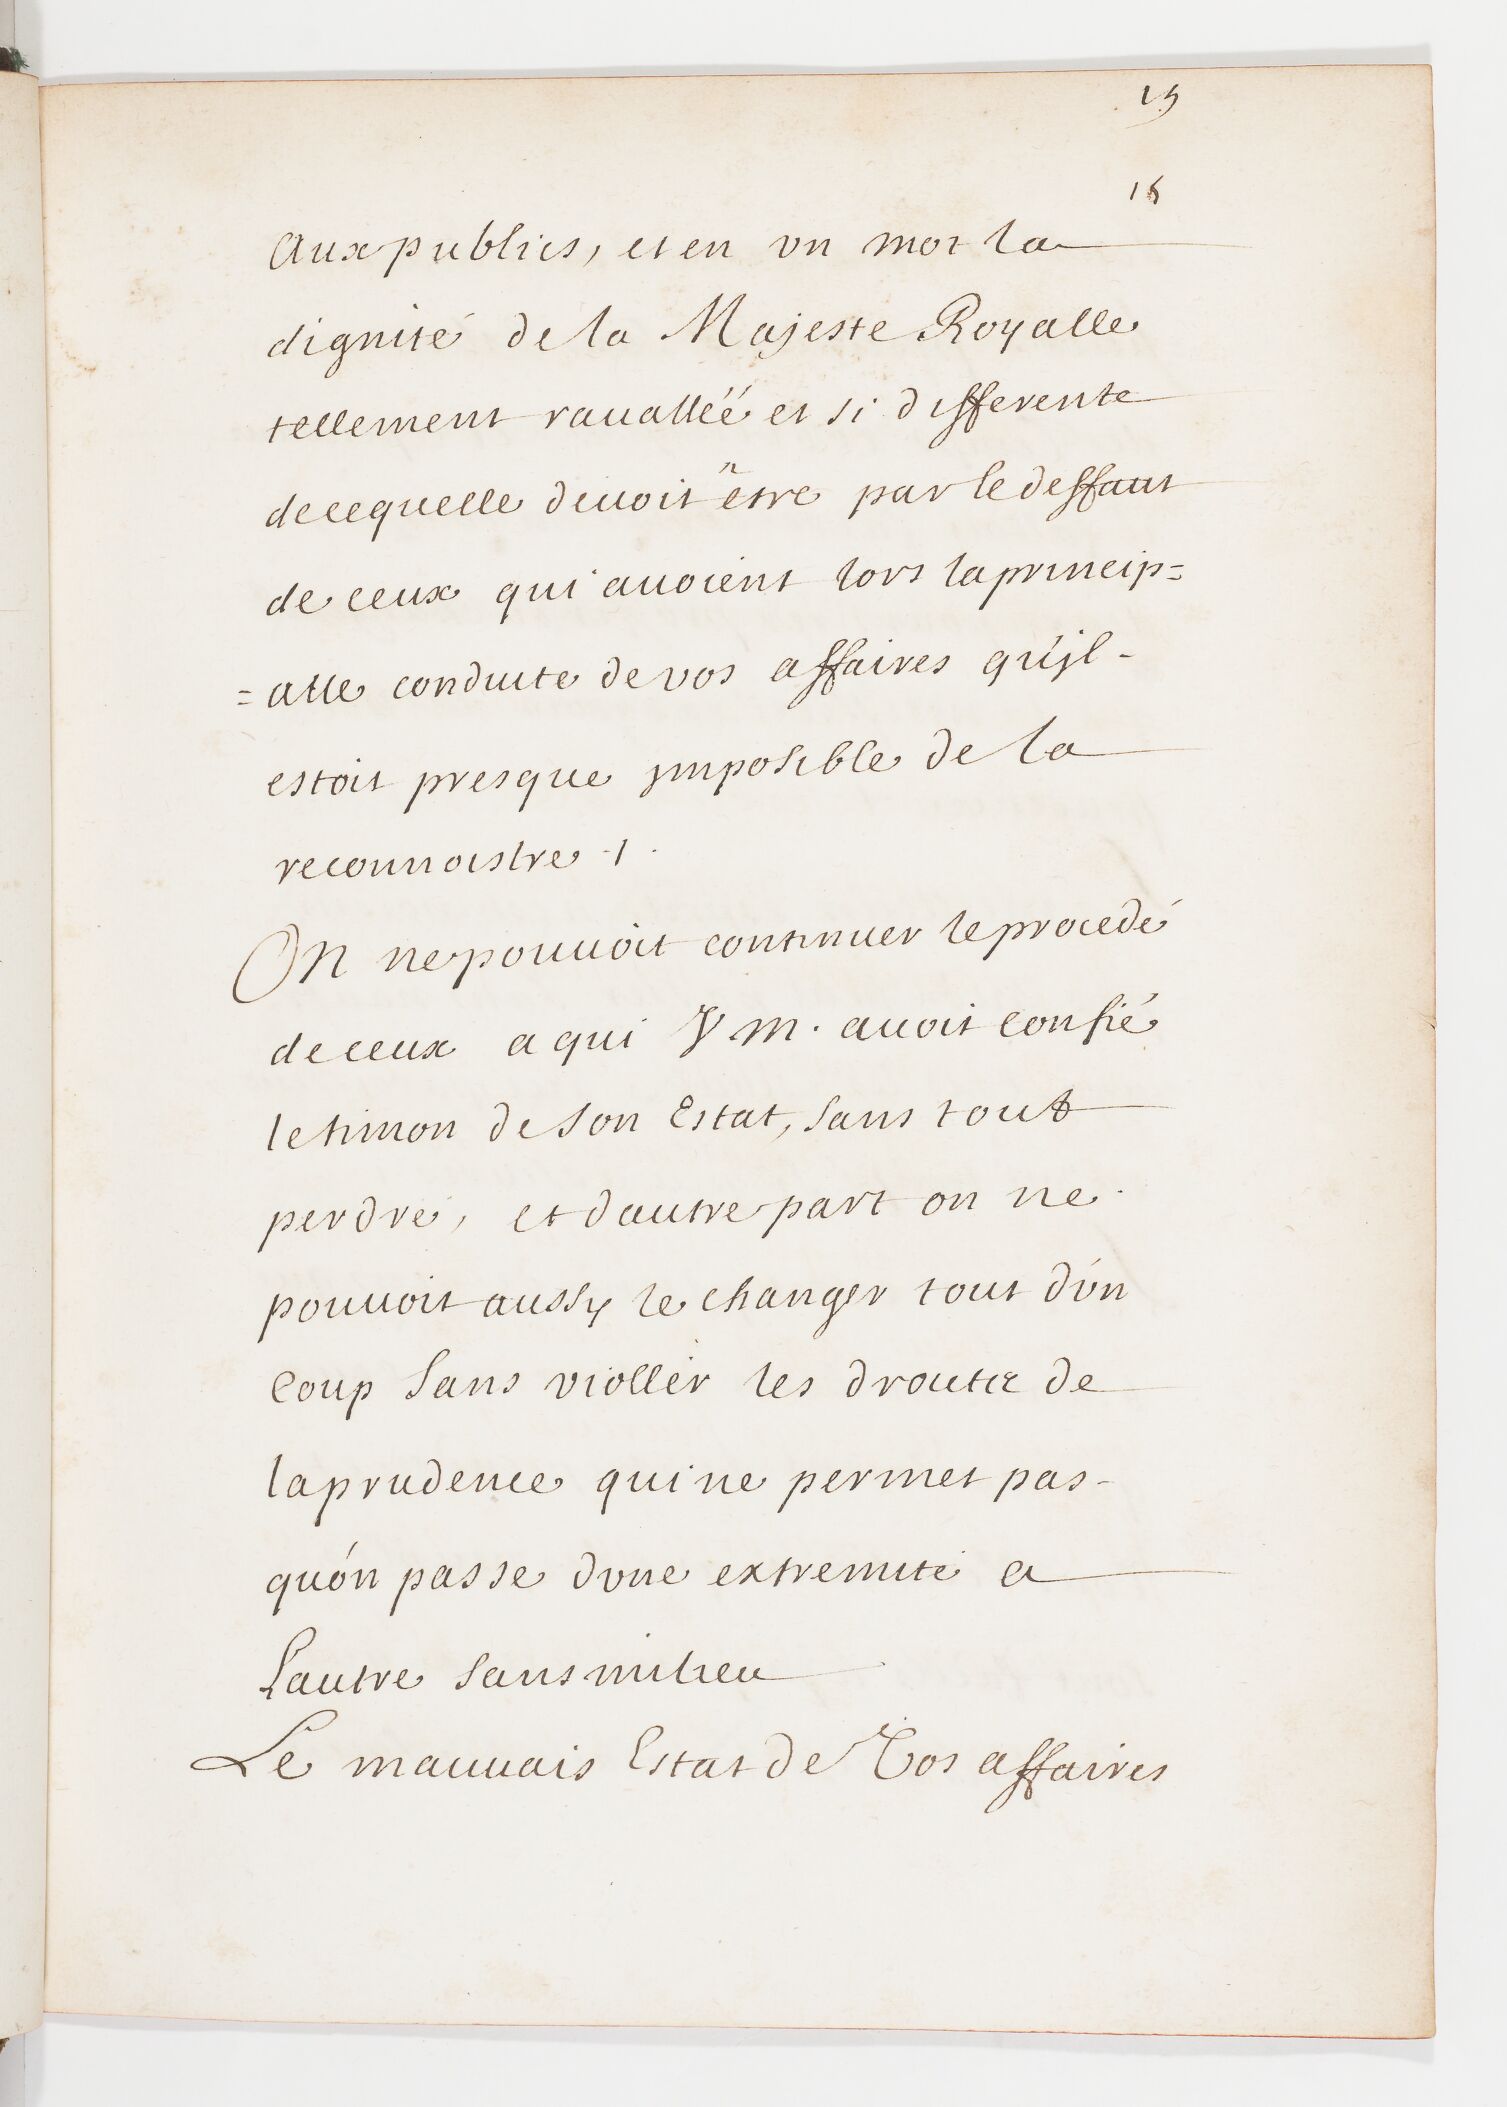 15
15
aux publics, et en vn mot la
dignité de la Majeste Royalle
tellement rauallée et si differente
de ce quelle deuoit être par le deffaut
de ceux qui auoient lors la princip=
=alle conduite de vos affaires qu'jl -
estoit presque jmposible de la
reconnoistre ./.
On ne pouuoit continuer le procedé
de ceux a qui V M. auoit confié
le timon de son Estat, sans tout
perdre, et dautre part on ne
pouuoit aussy le changer tout d'vn
coup sans violler les de
la prudence qui ne permet pas -
qu'on passe dvne extremité a
Lautre sans milieu
Le mauuais Estat de Vos affaires